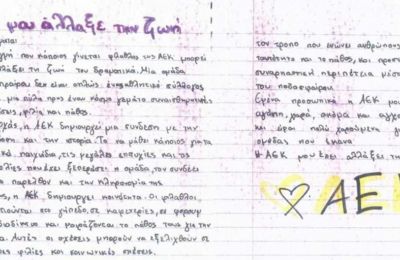 μου άλλαξε την ζωή
που κάποιος γίνεται φίλαθλος της ΑΕΚ μπορεί
ζωή του δραματικά. Μια ομάδα
δεν είναι απλώς ένας αθλητικός σύλλογος
μια πύλη προς έναν κόσμο γεμάτο συναισθηματικές
φιλία και πάθος.
η ΑΕΚ δημιουργεί μια σύνδεση με την
και την ιστορία. Το να μάθει κάποιος για τα
παιχνίδια, τις μεγάλες επιτυχίες και τις
που έχει ξεπεράσει η ομάδα, τον συνδέει
παρελθόν και την κληρονομιά της
η ΑΕΚ, δημιουργεί κοινότητα. Οι φίλαθλοι
στο γήπεδο, σε καφετέριες, σε φόρουμ
διαδίκτυο και μοιράζονται το πάθος τους για την
Αυτές οι σχέσεις μπορούν να εξελιχθούν σε
φιλίες και κοινωνικές σχέσεις.
τον τρόπο που ενώνει ανθρώπους
ταυτότητα και το πάθος, και προσ
συναρπαστική περιπέτεια μέσα
του ποδοσφαίρου.
Εμένα προσωπικά η ΑΕΚ μου
αγάπη, χαρά, ακόμα και άγχος
και άρα πολύ χαρούμενη για
ομάδας που έκανα.
Η ΑΕΚ μου έχει αλλάξει την
ΑΕΚ